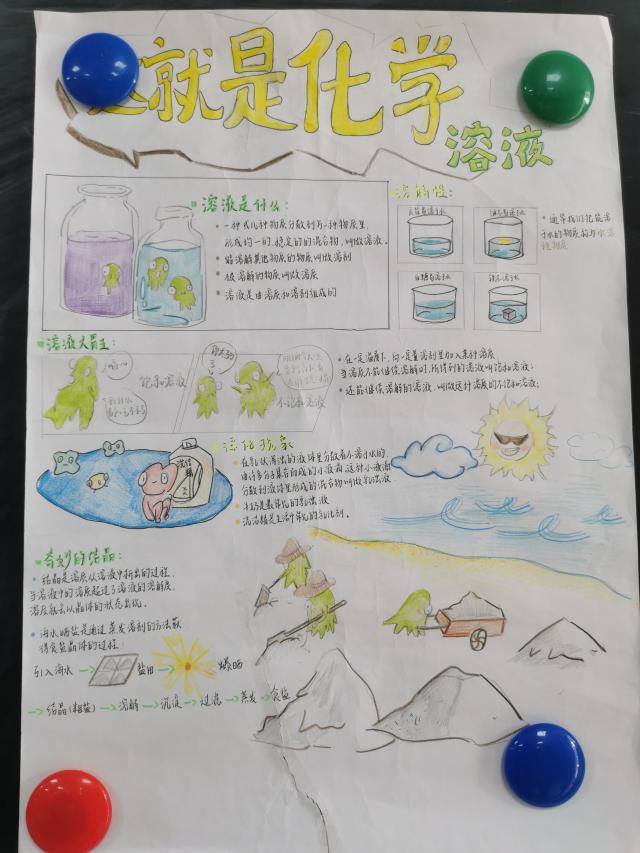 就是化学
溶液
溶液是什么:
一种或几种物质分散到另一种物质里,
形成均一的、稳定的的混合物,叫做溶液。
能溶解其他物质的物质叫做溶剂
被溶解的物质叫做溶质
溶液是由溶质和溶剂组成的
溶解性:
通常我们把能溶
于水的物质称为水溶
性物质
溶液大胃王:
饱和溶液
不饱和溶液
在一定温度下,向一定量溶剂里加入某种溶质
当溶质不能继续溶解时,所得到的溶液叫饱和溶液;
还能继续溶解的溶液,叫做这种溶质的不饱和溶液;
乳化现象
在乳状浑浊的液体里分散着不溶于水的、
由许多分子集合而成的小液滴,这种小液滴
分散到液体里形成的混合物叫做乳浊液
牛奶是最常见的乳浊液
洗洁精是生活中常见的乳化剂。
奇妙的结晶:
结晶是溶质从溶液中析出的过程,
当溶液中的溶质超过了溶液的溶解度,
溶质就会以晶体的状态出现。
海水晒盐是通过蒸发溶剂的方法获
得食盐晶体的过程:
引入海水→盐田→曝晒
→结晶(粗盐)→溶解→沉淀→过滤→蒸发→食盐